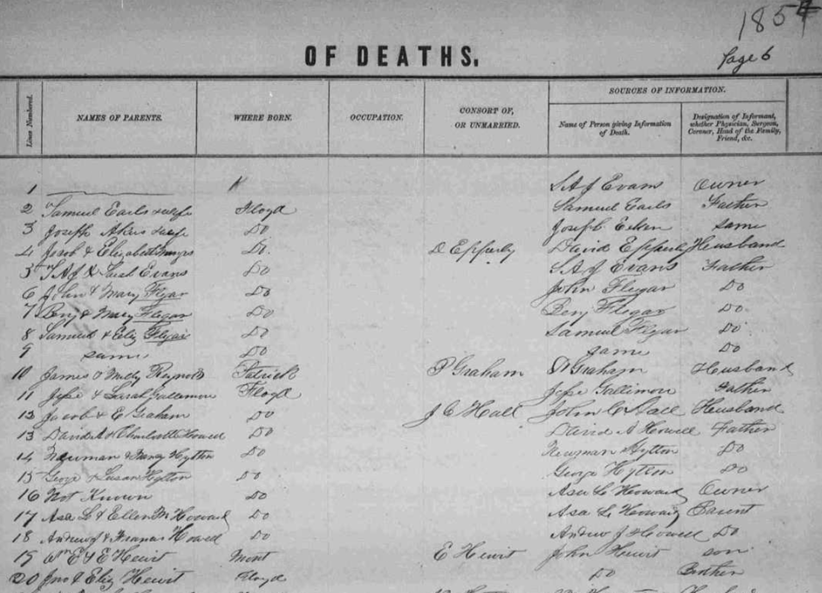 1854
Page 6
OF DEATHS.
Lines Numbered. NAMES OF PARENTS. WHERE BORN. OCCUPATION. CONSORT OF, OR UNMARRIED. SOURCES OF INFORMATION.
Name of Person giving Information of Death. Designation of Informant, whether Physician, Surgeon, Coroner, Head of the Family, Friend, &c.
1 S A J Evans Owner
2 Samuel Earls & wife Floyd Samuel Earls Father
3 Joseph Akers & wife Do Joseph same
4 Jacob & Elizabeth Do. D Epperly David Epperly Husband
5 & Evans Do S A J Evans Father
6 John & Mary Flegar Do John Flegar Do
7 Benj & Mary Flegar Do Benj Flegar Do
8 Samuel & Eliz Flegar Do Samuel Flegar Do
9 same Do same Do
10 James & Milly Reynolds Patrick P Graham P Graham Husband
11 Jesse & Sarah Gallimore Floyd Jesse Gallimore Father
12 Jacob & E Graham Do J C Hall John C Hall Husband
13 David A & Charlotte Howell Do David A Howell Father
14 Newman & Nancy Hylton Do Newman Hylton Do
15 George & Susan Hylton Do George Hylton Do
16 Not Known Do Asa L Howard Owner
17 Asa L & Ellen M Howard Do Asa L Howard Parent
18 Andrew J & Frances Howell Do Andrew J Howell Do
19 Wm E & E Hewit Mont E Hewit John Hewit son
20 Jno & Eliz Hewit Floyd Do Brother